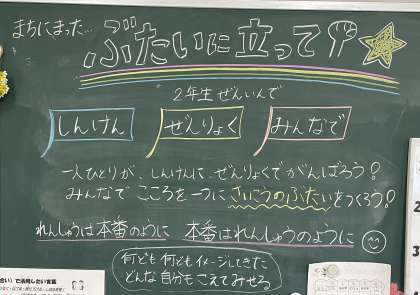 まちにまった…
ぶたいに立って
2年生 ぜんいんで
しんけん
ぜんりょく
みんなで
一人ひとりが、しんけんに、ぜんりょくでがんばろう!
みんなで こころを一つに さいこうのぶたいをつくろう!
れんしゅうは本番のように 本番はれんしゅうのように
何ども何どもイメージしてきた
どんな自分もこえてみせる
合い)で活用したい言葉
2
3